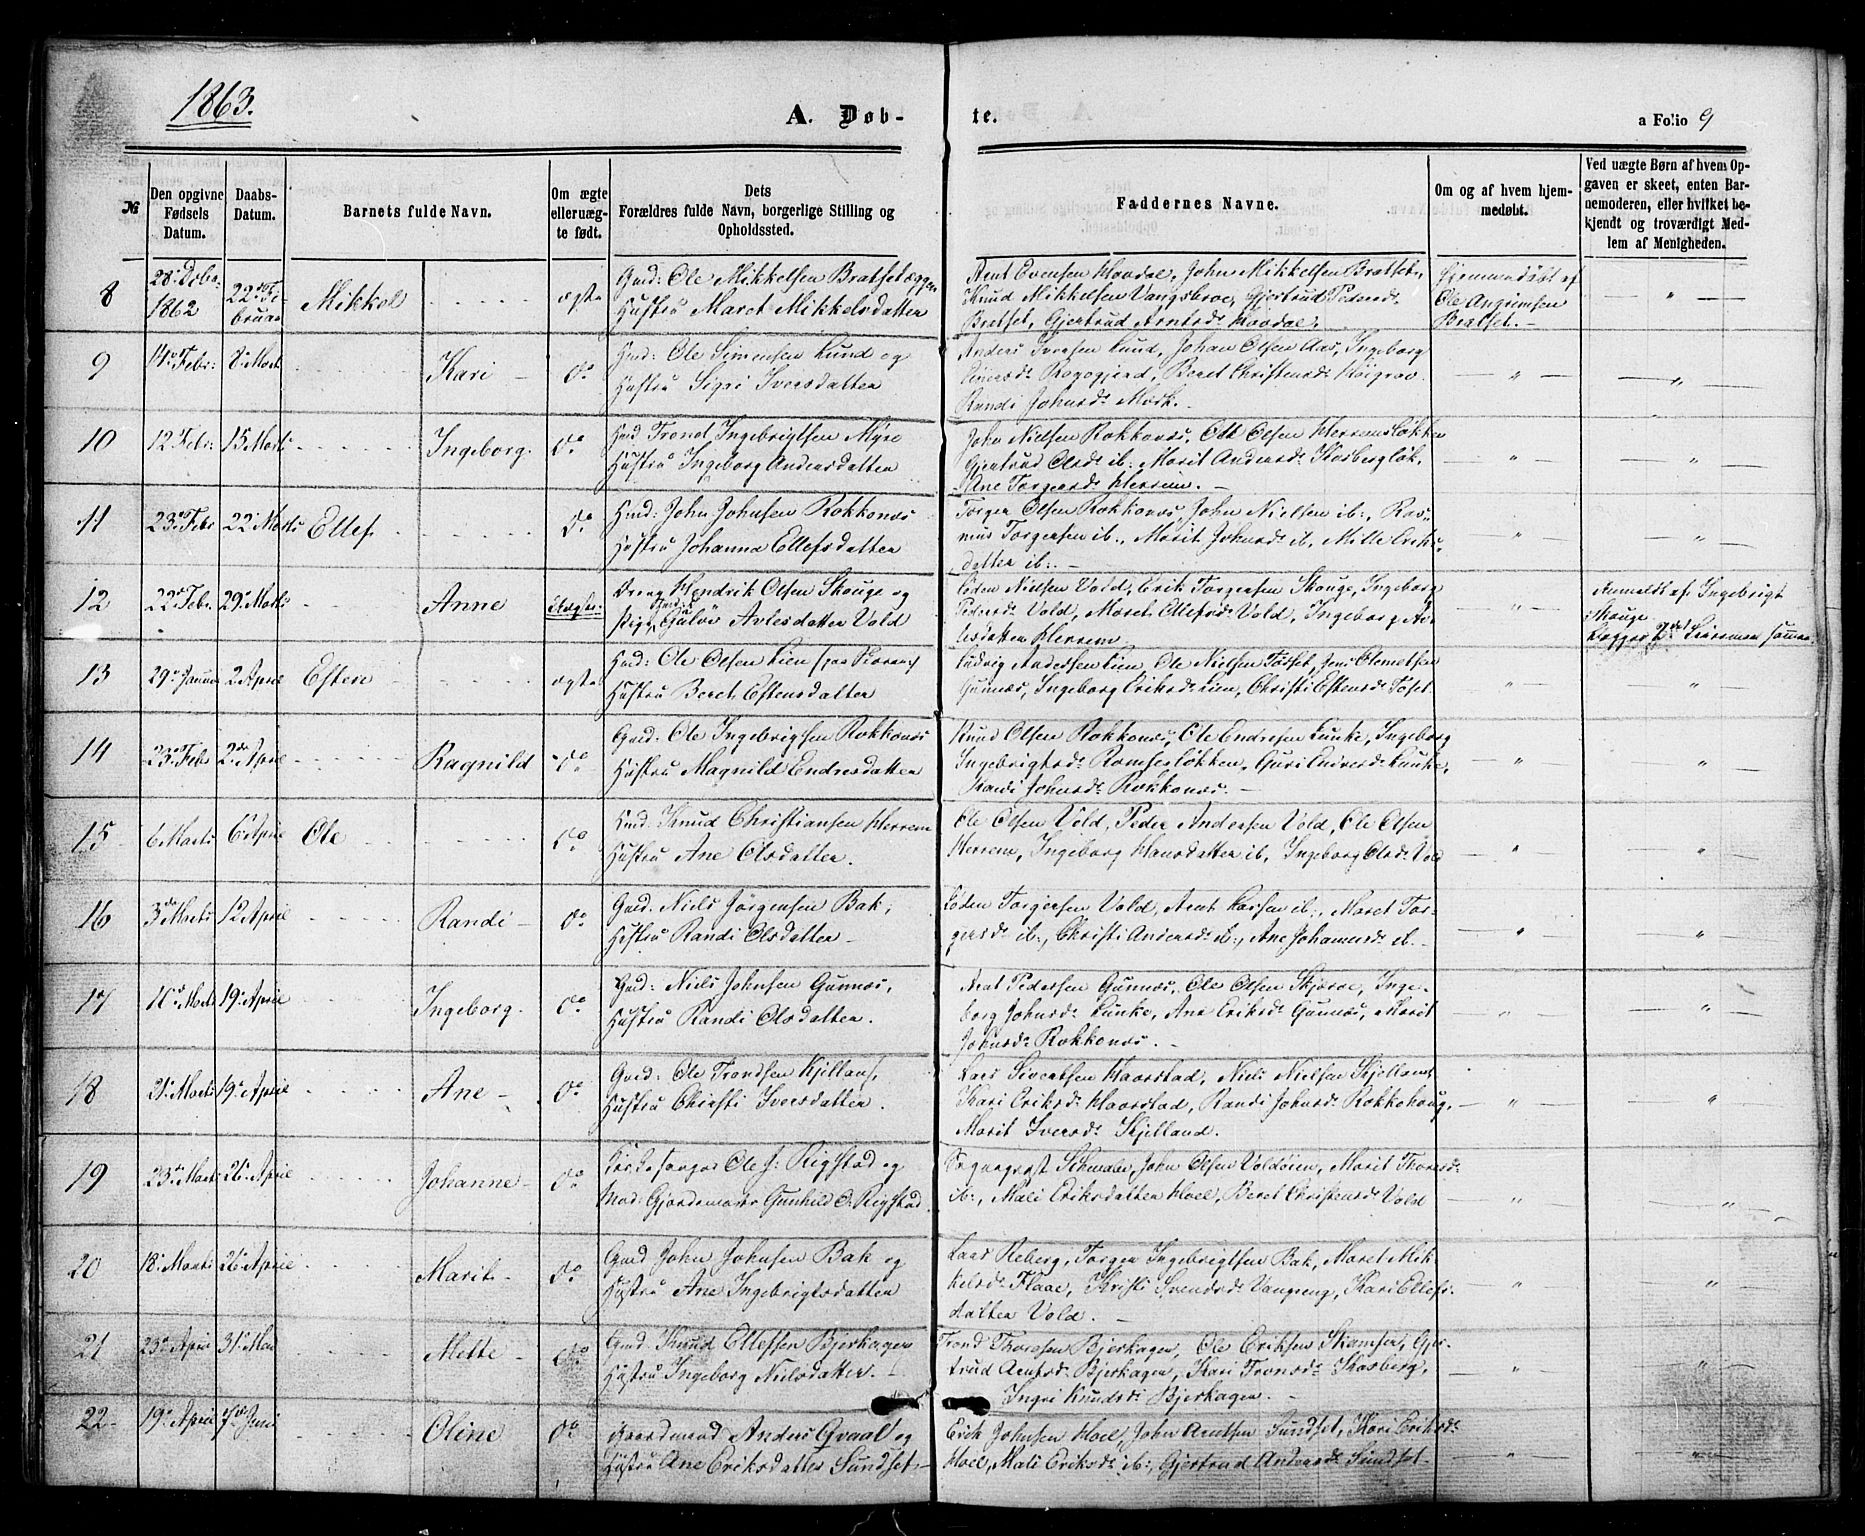 1863.
A. Døb-
te.
a Folio 9
№
Den opgivne
Fødsels
Datum.
Daabs-
Datum.
Barnets fulde Navn.
Om ægte
eller uæg-
te født.
Dets
Forældres fulde Navn, borgerlige Stilling og
Opholdssted.
Faddernes Navne.
Om og af hvem hjem-
medøbt.
Ved uægte Børn af hvem Op-
gaven er skeet, enten Bar-
nemoderen, eller hvilket be-
kjendt og troværdigt Med-
lem af Menigheden.
8
1862
Mikkel
ægte
Ole Mikkelsen Bratsetæggen
Hustru Maret Mikkelsdatter
Arnt Evensen Hovdal, John Mikkelsen Bratset,
Knud Mikkelsen Vangsbroe, Gjertrud Pedersd.
Bratset, Gjertrud Arntsd. Hovdal.
Hjemmedøbt af
Ole Angrimsen
Bratset.
9
14. Febr: 8. Marts
Kari
do
Hmd: Ole Simensen Lund og
Hustru Sigri Iversdatter
Anders Iversen Lund, Johan Olsen Aas, Ingeborg
Beret Christensd.
Randi Johnsd. Mærk.
10
12 Febr: 15 Marts
Ingeborg
do
Hmd Trond Ingebrigtsen Myre
Hustru Ingeborg Andersdatter
John Nielsen Rokkones, Ole Olsen Herremsløkken
Gjertrud Olsd. ib: Marit Andersd.
Ane Torgersd. Herrem.
11
23 Febr 22 Marts
Ellef
do
Hmd: John Johnsen Rokkones
Hustru Johanna Ellefsdatter
Torger Olsen Rokkones, John Nielsen ib:, Ras-
mus Torgersen ib., Marit Johnsd. ib., Mille Eriks-
datter ib.
12
22 Febr 29 Marts
Anne
Uægte
Dreng Hendrik Olsen Skouge og
Pige Avlesdatter Vold
Loden Nielsen Vold, Erik Torgersen Skouge, Ingeborg
Pedersd. Vold, Maret Ellefsd. Vold, Ingeborg Av-
lesdatter Herrem
Anmeldt af Ingebrigt
Skouge
13
29 Januar 2 April
Esten
ægte
Hmd: Ole Olsen Lien
Hustru Beret Estensdatter
Ludvig Andersen Lien, Ole Nielsen Toset, Jens Clemetsen
Gunnes, Ingeborg Eriksd. Lien, Christi Estensd. Toset
14
23 Febr 2den April
Ragnild
do
Gmd: Ole Ingebrigtsen Rokkones
Hustru Magnild Endresdatter
Knud Olsen Rokkones, Ole Endresen Lunke, Ingeborg
Ingebrigtsd. Ramsesløkken, Guri Endresd. Lunke,
Randi Johnsd. Rokkones.
15
6 Marts 6 April
Ole
do
Hmd: Knud Christiansen Herrem
Hustru Ane Olsdatter.
Ole Olsen Vold, Peder Andersen Vold, Ole Olsen
Herrem, Ingeborg Hansdatter ib, Ingeborg Olsd. Vold
16
3de Marts 12 April
Randi
do
Gmd: Niels Jørgensen Bak,
Hustru Randi Olsdatter
Loden Torgersen Vold, Arnt Larsen ib., Maret Tor-
gersd. ib., Christi Andersd. ib., Ane Johannesd. ib.
17
10 Marts 19 April
Ingeborg
do
Gmd: Niels Johnsen Gunnes,
Hustru Randi Olsdatter.
Arnt Pedersen Gunnes, Ole Olsen Skjæroe, Inge-
borg Johnsd. Lunke, Ane Eriksd. Gunnes, Marit
Johnsd. Rokkones.
18
21 Marts 19 April
Ane
do
Gmd: Ole Trondsen Kjilland,
Hustru Christi Iversdatter.
Lars Sivertsen Haarstad, Niels Nielsen Skjelland,
Kari Eriksd. Haarstad, Randi Johnsd. Rokkehaug,
Marit Iversd. Skjelland.
19
23 Marts 26 April
Johanne
do
Kirkesanger Ole J. Rigstad og
Mad: Gjordemoder Gunhild O. Rigstad.
Sogneprest Schindler, John Olsen Voldøien, Marit Thoresd.
ib., Mali Eriksdatter Hoel, Beret Christensd. Vold
20
18 Marts 26 April
Marit
do
Gmd John Johnsen Bak og
Hustru Ane Ingebrigtsdatter
Lars Reberg, Torger Ingebrigtsen Bak, Maret Mik-
kelsd. Flaae, Kristi Svendsd. Vangeng, Kari Ellefs-
datter Vold.
21
23 April 31 Mai
Mette
do
Gmd. Knud Ellefsen Bjerkagen
Hustru Ingeborg Nielsdatter.
Trond Thoresen Bjerkagen, Ole Eriksen Skamsen, Gjer-
trud Arntsd. Bjerkagen, Kari Tronsd. Skarberg,
Ingri Knudsd. Bjerkagen.
22
19 April 7de Juni
Oline
do
Gaardmand Anders Qvaal og
Hustru Ane Eriksdatter Sundset
Erik Johnsen Hoel, John Arntsen Sundset, Kari Eriksd.
Hoel, Mali Eriksd. ib:, Gjertrud Andersd. Sundset